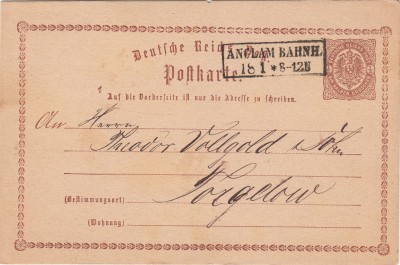 Deutsche Reichs-Post.
ANCLAM BAHNH.
18 1 * 8-12N
Postkarte.
Auf die Vorderseite ist nur die Adresse zu schreiben.
An Herrn
Theodor Vollgold & Sohn
Torgelow
(Bestimmungsort)
(Wohnung)